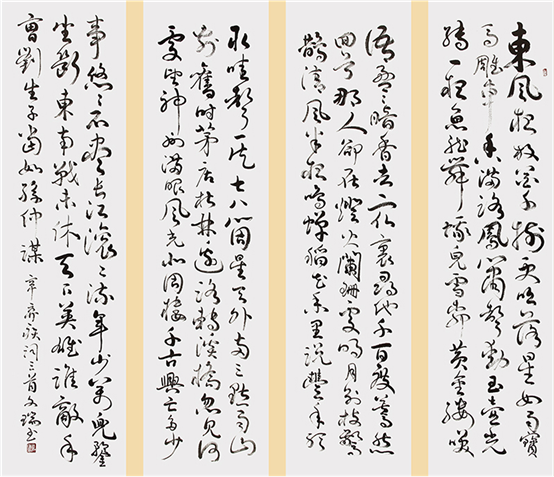 東風夜放花千樹更吹落星如雨寶
馬雕車香滿路鳳簫聲動玉壺光
轉一夜魚龍舞蛾兒雪柳黃金縷笑
語盈々暗香去衆裏尋他千百度驀然
回首那人卻在燈火闌珊處明月別枝驚
鵲清風半夜鳴蟬稻花香里說豐年聽
取蛙聲一片七八個星天外兩三點雨山
前舊時茅店社林邊路轉溪橋忽見何
處望神州滿眼風光北固樓千古興亡多少
事悠々不盡長江滾々流年少萬兜鍪
坐斷東南戰未休天下英雄誰敵手
曹劉生子當如孫仲謀 辛棄疾詞三首文瑞書